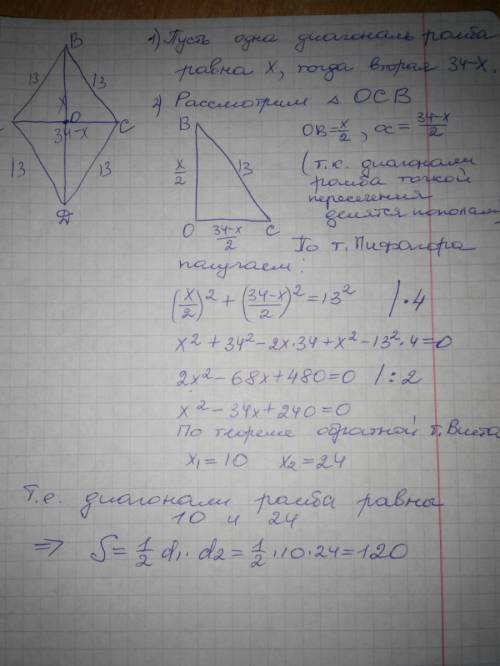 1) Пусть одна диагональ ромба
равна x, тогда вторая 34-x.
2) Рассмотрим △ OCB
B
13 13
x
O
34-x
C
13 13
D
B
x/2
13
O
34-x/2
C
OB=x/2, OC=34-x/2
(т.к. диагонали
ромба точкой
пересечения
делятся пополам
По т. Пифагора
получаем:
(x/2)² + (34-x/2)² = 13² /·4
x² + 34² - 2x·34 + x² - 13²·4 = 0
2x² - 68x + 480 = 0 /:2
x² - 34x + 240 = 0
По теореме обратной т. Виета
x₁ = 10 x₂ = 24
Т.е. диагонали ромба равны
10 и 24
⇒ S = 1/2 d₁·d₂ = 1/2·10·24 = 120